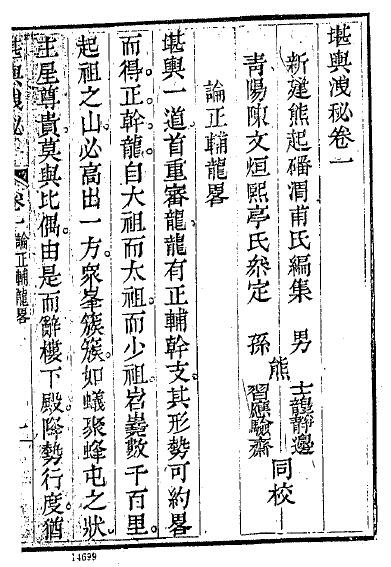 堪輿洩秘卷一
新建熊起磻渭甫氏編集 男 士龍靜邊
熊 同校
青陽陳文烜熙亭氏叅定 孫 習應驗齋
論正輔龍畧
堪輿一道首重審龍龍有正輔幹支其形勢可約畧
而得。正幹龍自大祖而太祖而少祖岩嶤數千百里。
起祖之山必高出一方。衆峯簇簇。如蟻聚蜂屯之狀。
主星尊貴莫與比偶。由是而辭樓下殿。降勢行度。猶
堪輿洩秘 卷一 論正輔龍畧 一
14699